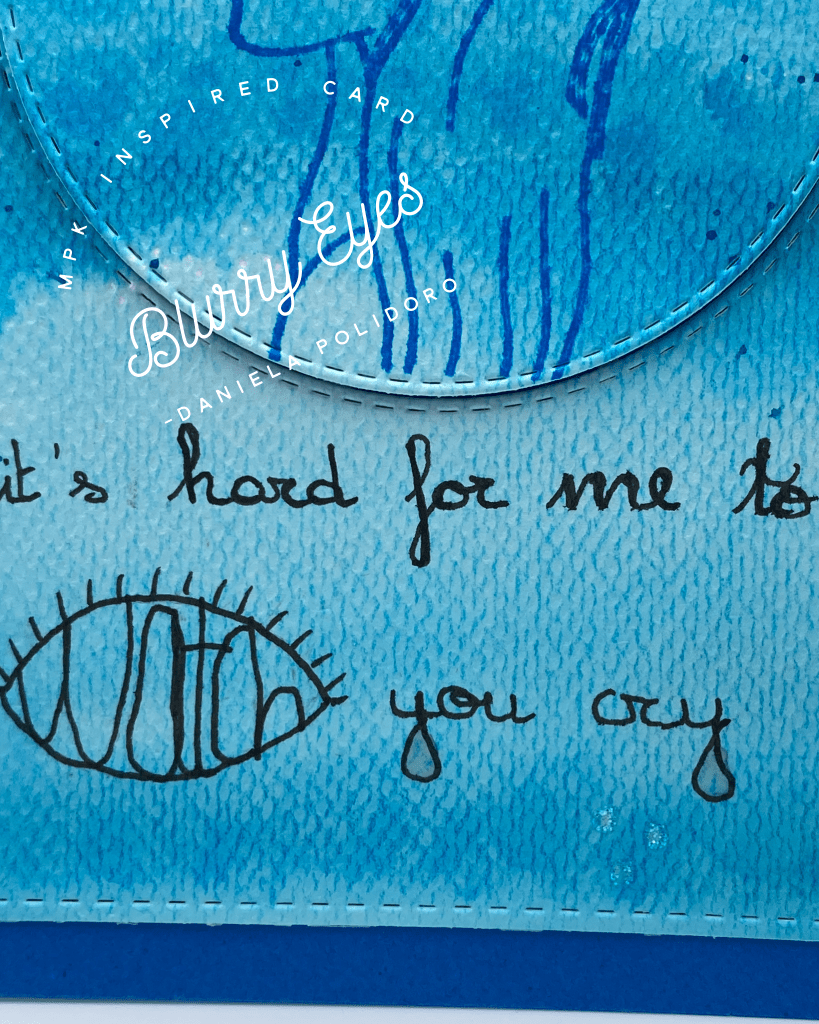 MPK INSPIRED CARD
Blurry Eyes
-DANIELA POLIDORO
it's hard for me to
watch you cry